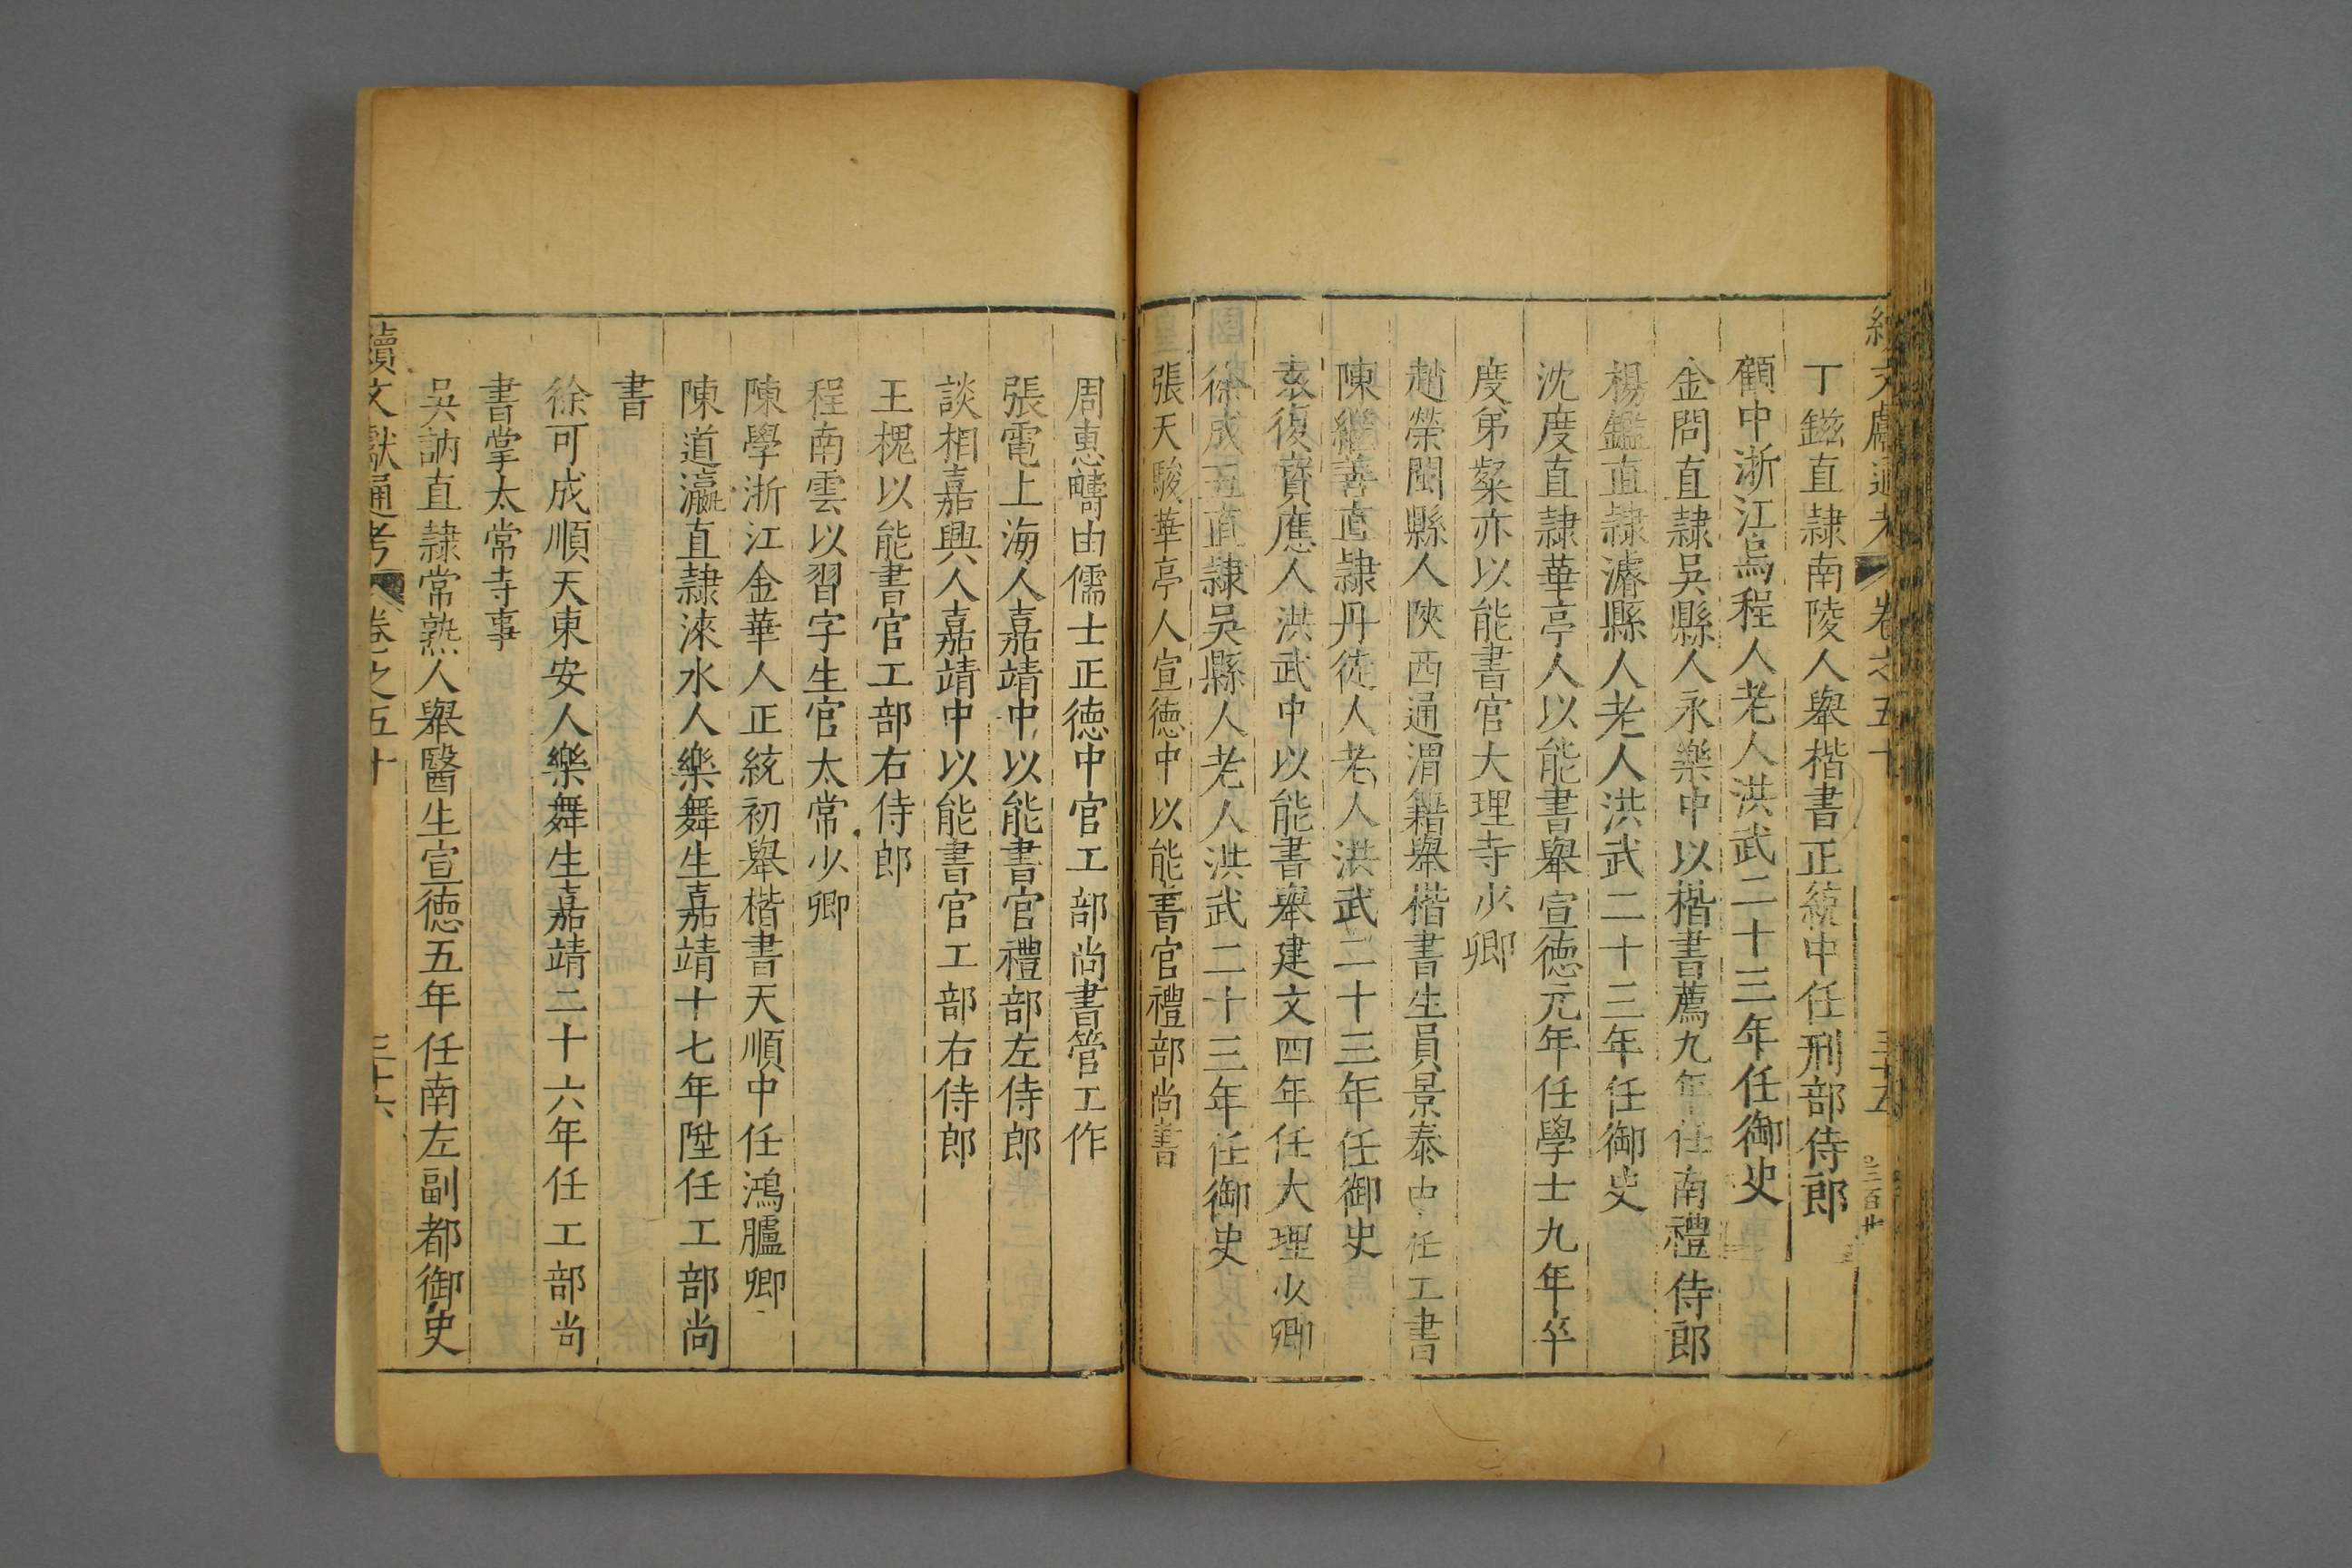 續文獻通考 卷之五十 三十五
丁鎡直隸南陵人舉楷書正統中任刑部侍郎
顧中浙江烏程人老人洪武二十三年任御史
金問直隸吳縣人永樂中以楷書薦九年任南禮侍郎
楊鑑直隸濬縣人老人洪武二十三年任御史
沈度直隸華亭人以能書舉宣德元年任學士九年卒
度弟粲亦以能書官大理寺少卿
趙榮閩縣人陝西通渭籍舉楷書生員景泰中任工書
陳繼善直隸丹徒人老人洪武二十三年任御史
袁復寶應人洪武中以能書舉建文四年任大理少卿
徐成五直隸吳縣人老人洪武二十三年任御史
張天駿華亭人宣德中以能書官禮部尚書
周惠疇由儒士正德中官工部尚書管工作
張電上海人嘉靖中以能書官禮部左侍郎
談相嘉興人嘉靖中以能書官工部右侍郎
王槐以能書官工部右侍郎
程南雲以習字生官太常少卿
陳學浙江金華人正統初舉楷書天順中任鴻臚卿
陳道瀛直隸淶水人樂舞生嘉靖十七年陞任工部尚
書
徐可成順天東安人樂舞生嘉靖二十六年任工部尚
書掌太常寺事
吳訥直隸常熟人舉醫生宣德五年任南左副都御史
續文獻通考 卷之五十 三十六